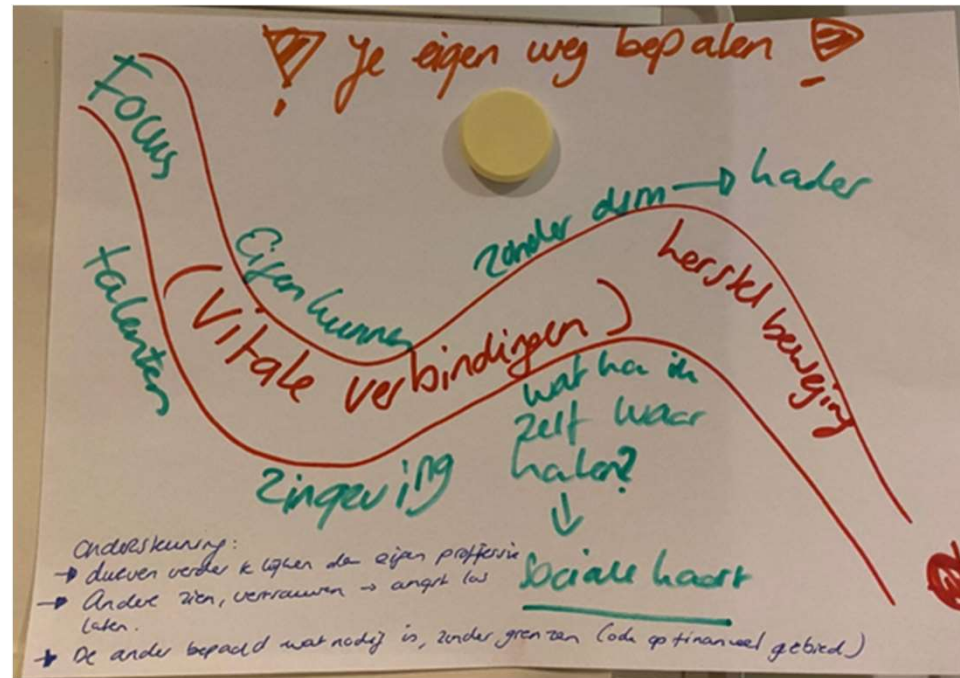 ! Je eigen weg bepalen !
Focus
talenten
Eigen kunnen
(Vitale verbindingen)
zonder dsm → kader
herstelbeweging
zingeving
wat ka ik
zelf waar
halen?
↓
Sociale kaart
Ondersteuning:
→ durven verder te kijken dan eigen proffessie
→ Andere zien, vertrouwen → angst los
laten.
→ De ander bepaald wat nodig is, zonder grenzen (ook op financieel gebied)